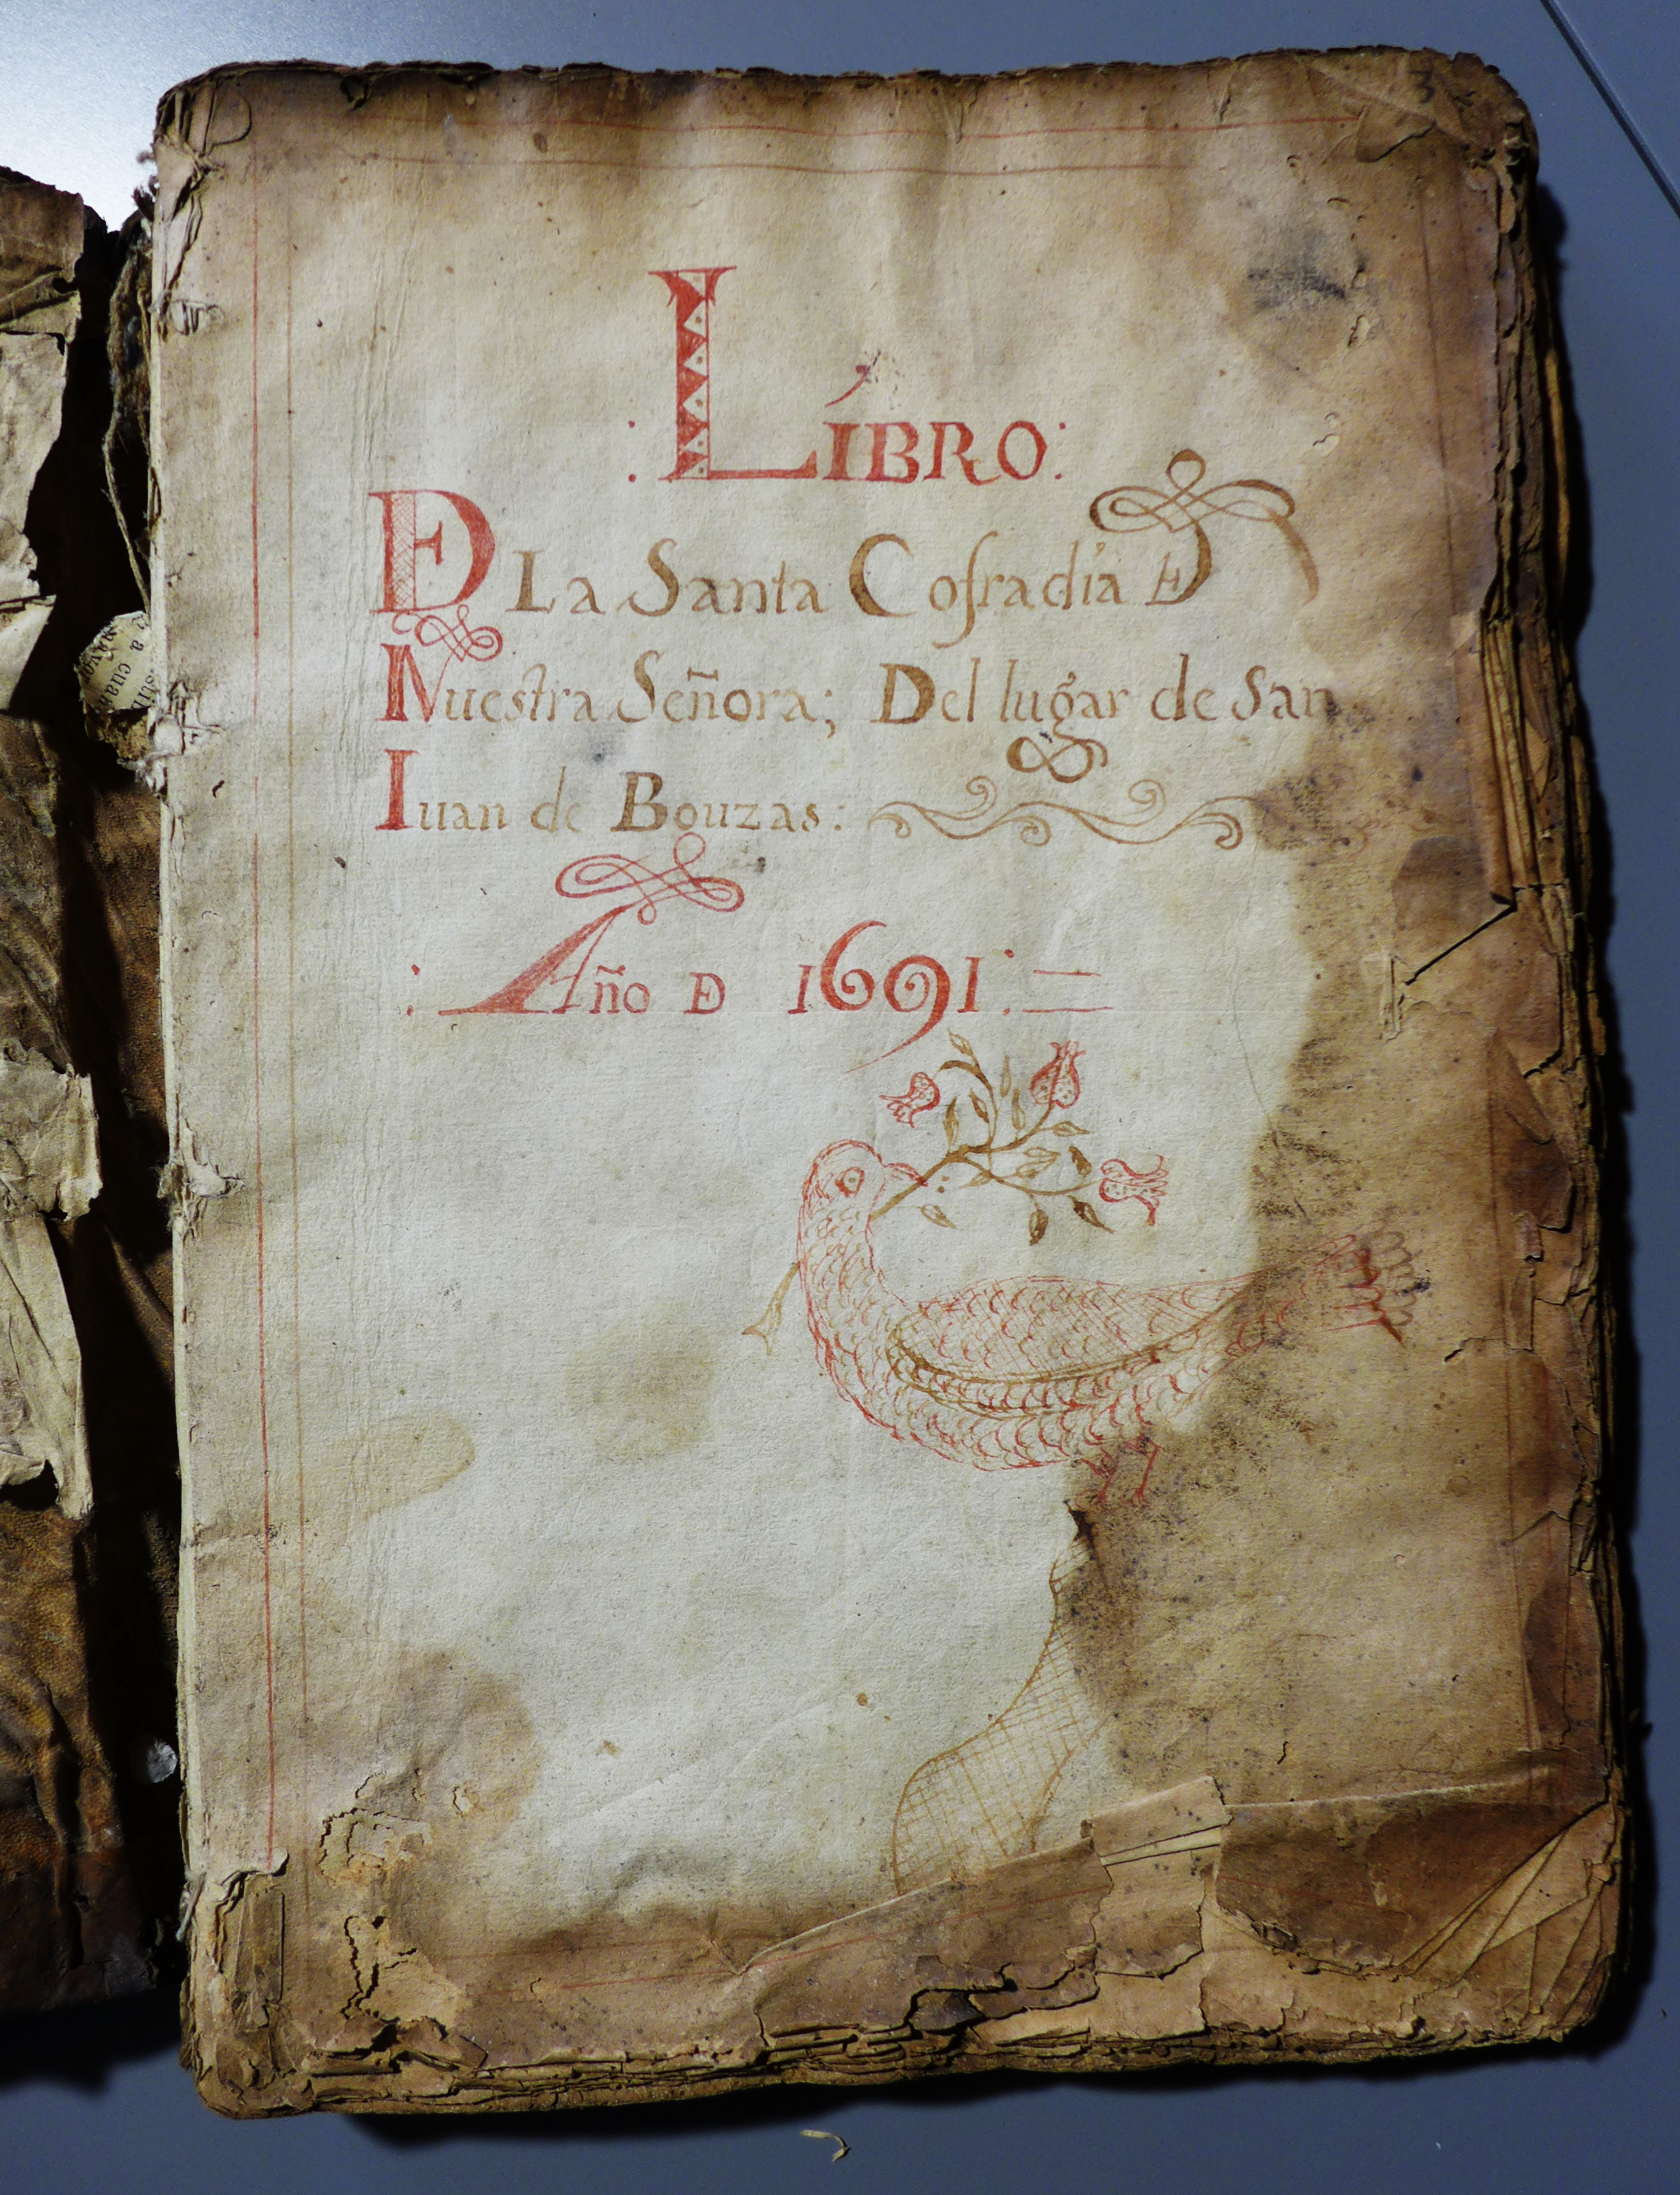 3
: LIBRO:
DE La Santa Cofradia DE
Nuestra Señora; Del lugar de San
Iuan de Bouzas:
: Año DE 1691: =
a cuan